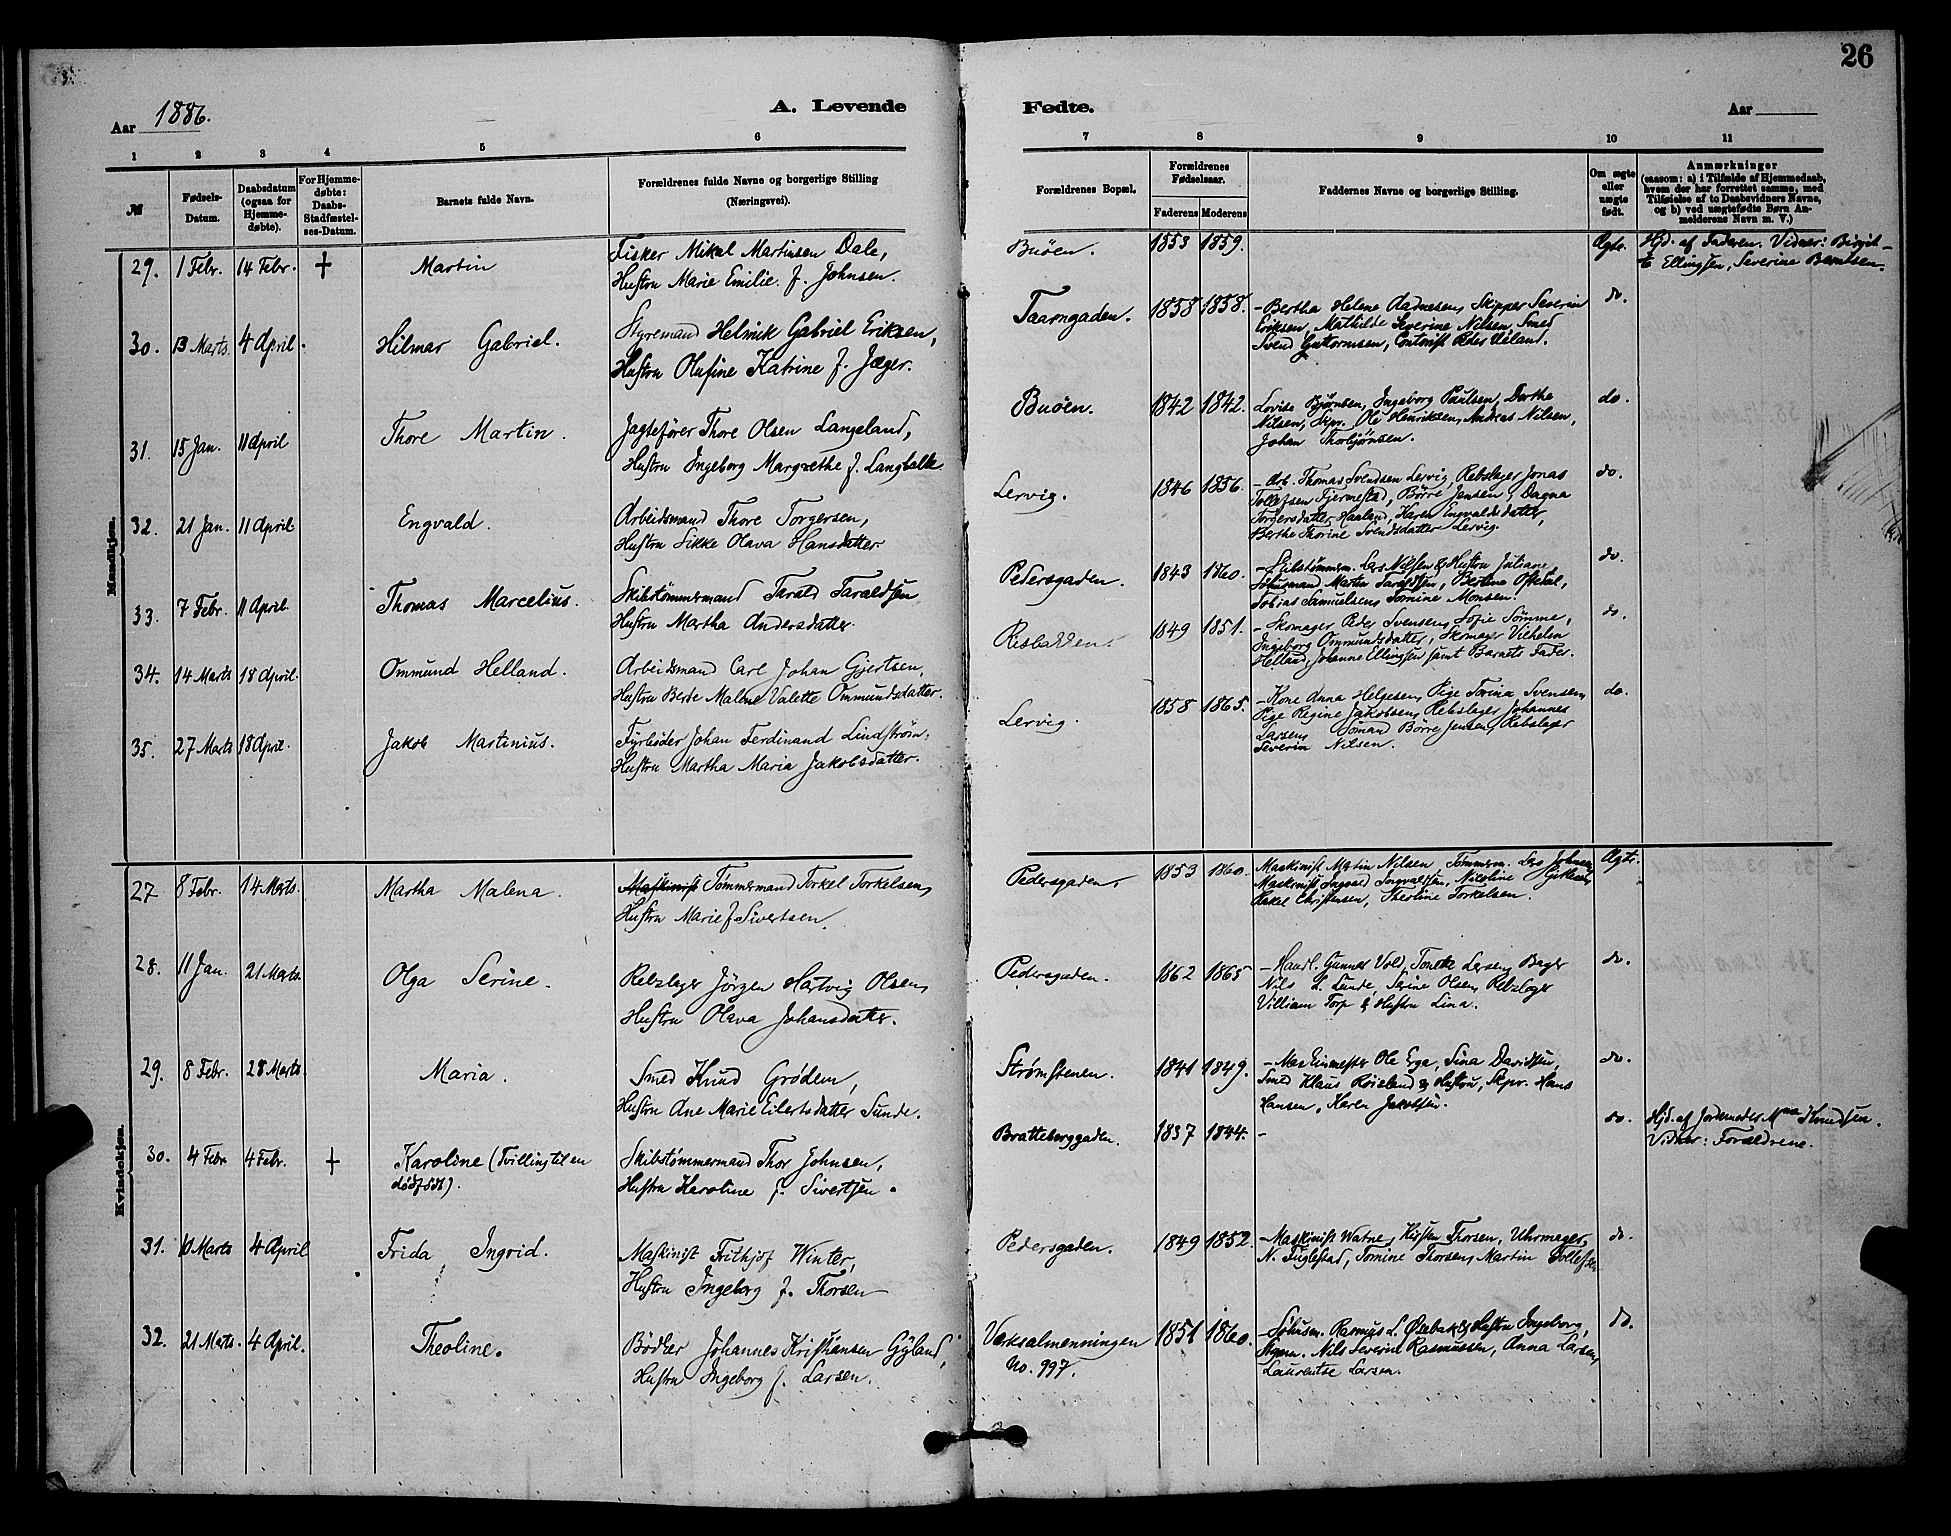 26
Aar 1886.
A. Levende
Fødte.
Aar
1 2 3 4 5 6 7 8 9 10 11
№
Fødsels-
Datum.
Daabsdatum
(ogsaa for
Hjemme-
døbte).
For Hjemme-
døbte:
Daabs-
Stadfæstel-
ses-Datum.
Barnets fulde Navn.
Forældrenes fulde Navne og borgerlige Stilling
(Næringsvei).
Forældrenes Bopæl,
Forældrenes
Fødselsaar.
Faderens Moderens
Faddernes Navne og borgerlige Stilling.
Om ægte
eller
uægte
født.
Anmærkninger
(saasom: a) i Tilfælde af Hjemmedaab,
hvem der har forrettet samme, med
Tilføielse af to Daabsvidners Navne,
og b) ved uægtefødte Børn An-
melderens Navn m. V.)
Mandkjøn.
29. 1 Febr. 14 Febr. + Martin
Fisker Mikal Martinsen Dale,
Hustru Marie Emilie f. Johnsen.
Buöen. 1853 1859. Ægte.
Hjd. af Faderen. Vidner: Birgit-
te Ellingsen, Severine Berntsen.
30. 13 Marts. 4 April. Hilmar Gabriel.
Styremand Helmik Gabriel Eriksen,
Hustru Olufine Katrine f. Jæger.
Taarngaden. 1858 1858.
- Bertha Helene Aadnesen, Skipper Severin
Eriksen, Mathilde Severine Nilsen, Smed
Svend Guttormsen, Contorist Peder Aaland.
do.
31. 15 Jan. 11 April Thore Martin.
Jagtefører Thore Olsen Langeland,
Hustru Ingeborg Margrethe f. Langballe
Buöen. 1842 1842.
Lovise Bjørnsen, Ingeborg Paulsen, Dorthe
Nilsen, Skpr. Ole Henriksen, Andreas Nilsen,
Johan Thorbjörnsen.
do.
32. 21 Jan. 11 April Engvald.
Arbeidsmand Thore Torgersen,
Hustru Sikke Olava Hansdatter.
Lervig. 1846 1856.
- Arb. Thomas Svendsen Lervig, Rebslager Jonas
Tollefsen Tjermestad, Börre Jensen, Dagna
Torgersdatter Haaland, Karen Engvaldsdatter,
Berthe Thorine Svendsdatter Lervig.
do.
33. 7 Febr. 11 April. Thomas Marcelius.
Skibstømmermand Tarald Taraldsen
Hustru Martha Andersdatter.
Pedersgaden. 1843 1860.
- Skibstømmerm. Lars Nilsen & Hustru Juliane,
Söhusmand Martin Taraldsen, Bertine Oftedal,
Tobias Samuelsen, Tomine Monsen.
do.
34. 14 Marts 18 April. Ommund Helland.
Arbeidsmand Carl Johan Gjertsen,
Hustru Berte Malene Valette Ommundsdatter.
Risbakken. 1849 1851.
- Skomager Peder Svensen, Sofie Sömme,
Ingeborg Ommundsdatter, Skomager Vilhelm
Helland, Johanne Ellingsen samt Barnets Fader.
do.
35. 27 Marts 18 April. Jakob Martinius.
Fyrbøder Johan Ferdinand Lindstrøm,
Hustru Martha Maria Jakobsdatter.
Lervig. 1858 1865.
- Kone Anna Helgesen, Pige Torina Svensen,
Pige Regine Jakobsen, Rebslager Johannes
Larsen, Sömand Börre Jensen, Rebslager
Severin Nilsen.
do.
Kvindekjøn.
27 8 Febr. 14 Marts. Martha Malena.
Maskinist Tømmermand Torkel Torkelsen,
Hustru Marie f Sivertsen.
Pedersgaden. 1853 1860.
Maskinist Martin Nilsen Tømmerm. Lars Johnsen
Maskinist Ingvald Ingvaldsen, Nicoline
Rakel Christensen, Theoline Torkelsen.
Ægte.
28. 11 Jan. 21 Marts. Olga Serine.
Rebslager Jörgen Hartvig Olsen,
Hustru Olava Johansdatter.
Pedersgaden. 1862 1865
- Handl. Gunner Vold, Tonette Larsen, Bager
Nils L. Lunde, Serine Olsen, Rebslager
Villiam Torp & Hustru Lina.
do.
29. 8 Febr. 28 Marts. Maria.
Smed Knud Grödem,
Hustru Ane Marie Eilertsdatter Sunde.
Strömstenen. 1841 1849.
- Maskinmester Ole Erga, Sina Davidsen,
Smed Klaus Roiseland & Hustru, Skpr. Hans
Hansen, Karen Jakobsen.
do.
30. 4 Febr. 4 Febr. + Karoline (Tvilling til en
dødfødt).
Skibstømmermand Thor Johnsen,
Hustru Karoline f. Sivertsen.
Bratteborggaden. 1837 1844. -
do.
Hjd. af Jordemoder Maa Knudsen.
Vidner: Forældrene.
31. 10 Marts 4 April Frida Ingrid.
Maskinist Frithjof Winter,
Hustru Ingeborg f. Thorsen
Pedersgaden. 1849 1852.
- Maskinist Watne, Kirsten Thorsen, Uhrmager
N. Fuglestad, Tomine Thorsen, Martin Tollefsen
do.
32. 21 Marts. 4 April. Theoline.
Bödker Johannes Kristiansen Gyland,
Hustru Ingeborg f. Larsen.
Værksalmenningen
No. 997.
1851 1860.
- Söhusm. Rasmus L. Østebak & Hustru Ingeborg,
Nils Severin Rasmussen, Anna Larsen,
Lauentse Larsen.
do.